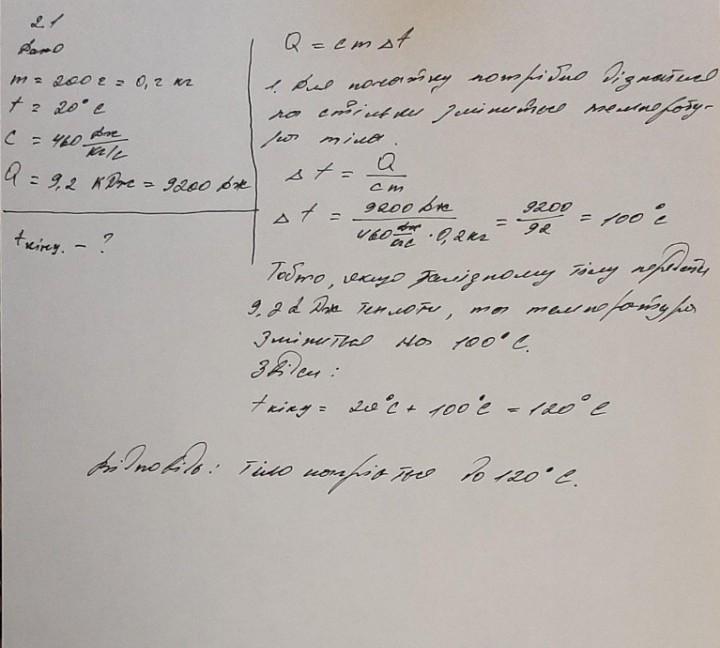 21
Дано
m = 200 г = 0,2 кг
t = 20°C
c = 460 Дж/кг/с
Q = 9,2 кДж = 9200 Дж
t кінц. - ?
Q = cm Δt
1. Для початку потрібно дізнатися
на стільки зміниться температу-
ра тіла.
Δt = Q/cm
Δt = 9200 Дж / 460 Дж/кгС · 0,2 кг = 9200/92 = 100°C
Тобто, якщо залізному тілу передати
9,2 Дж теплоти, то температура
зміниться на 100°C.
Звідси:
t кінц = 20°C + 100°C = 120°C
Відповідь: тіло нагріється до 120°C.